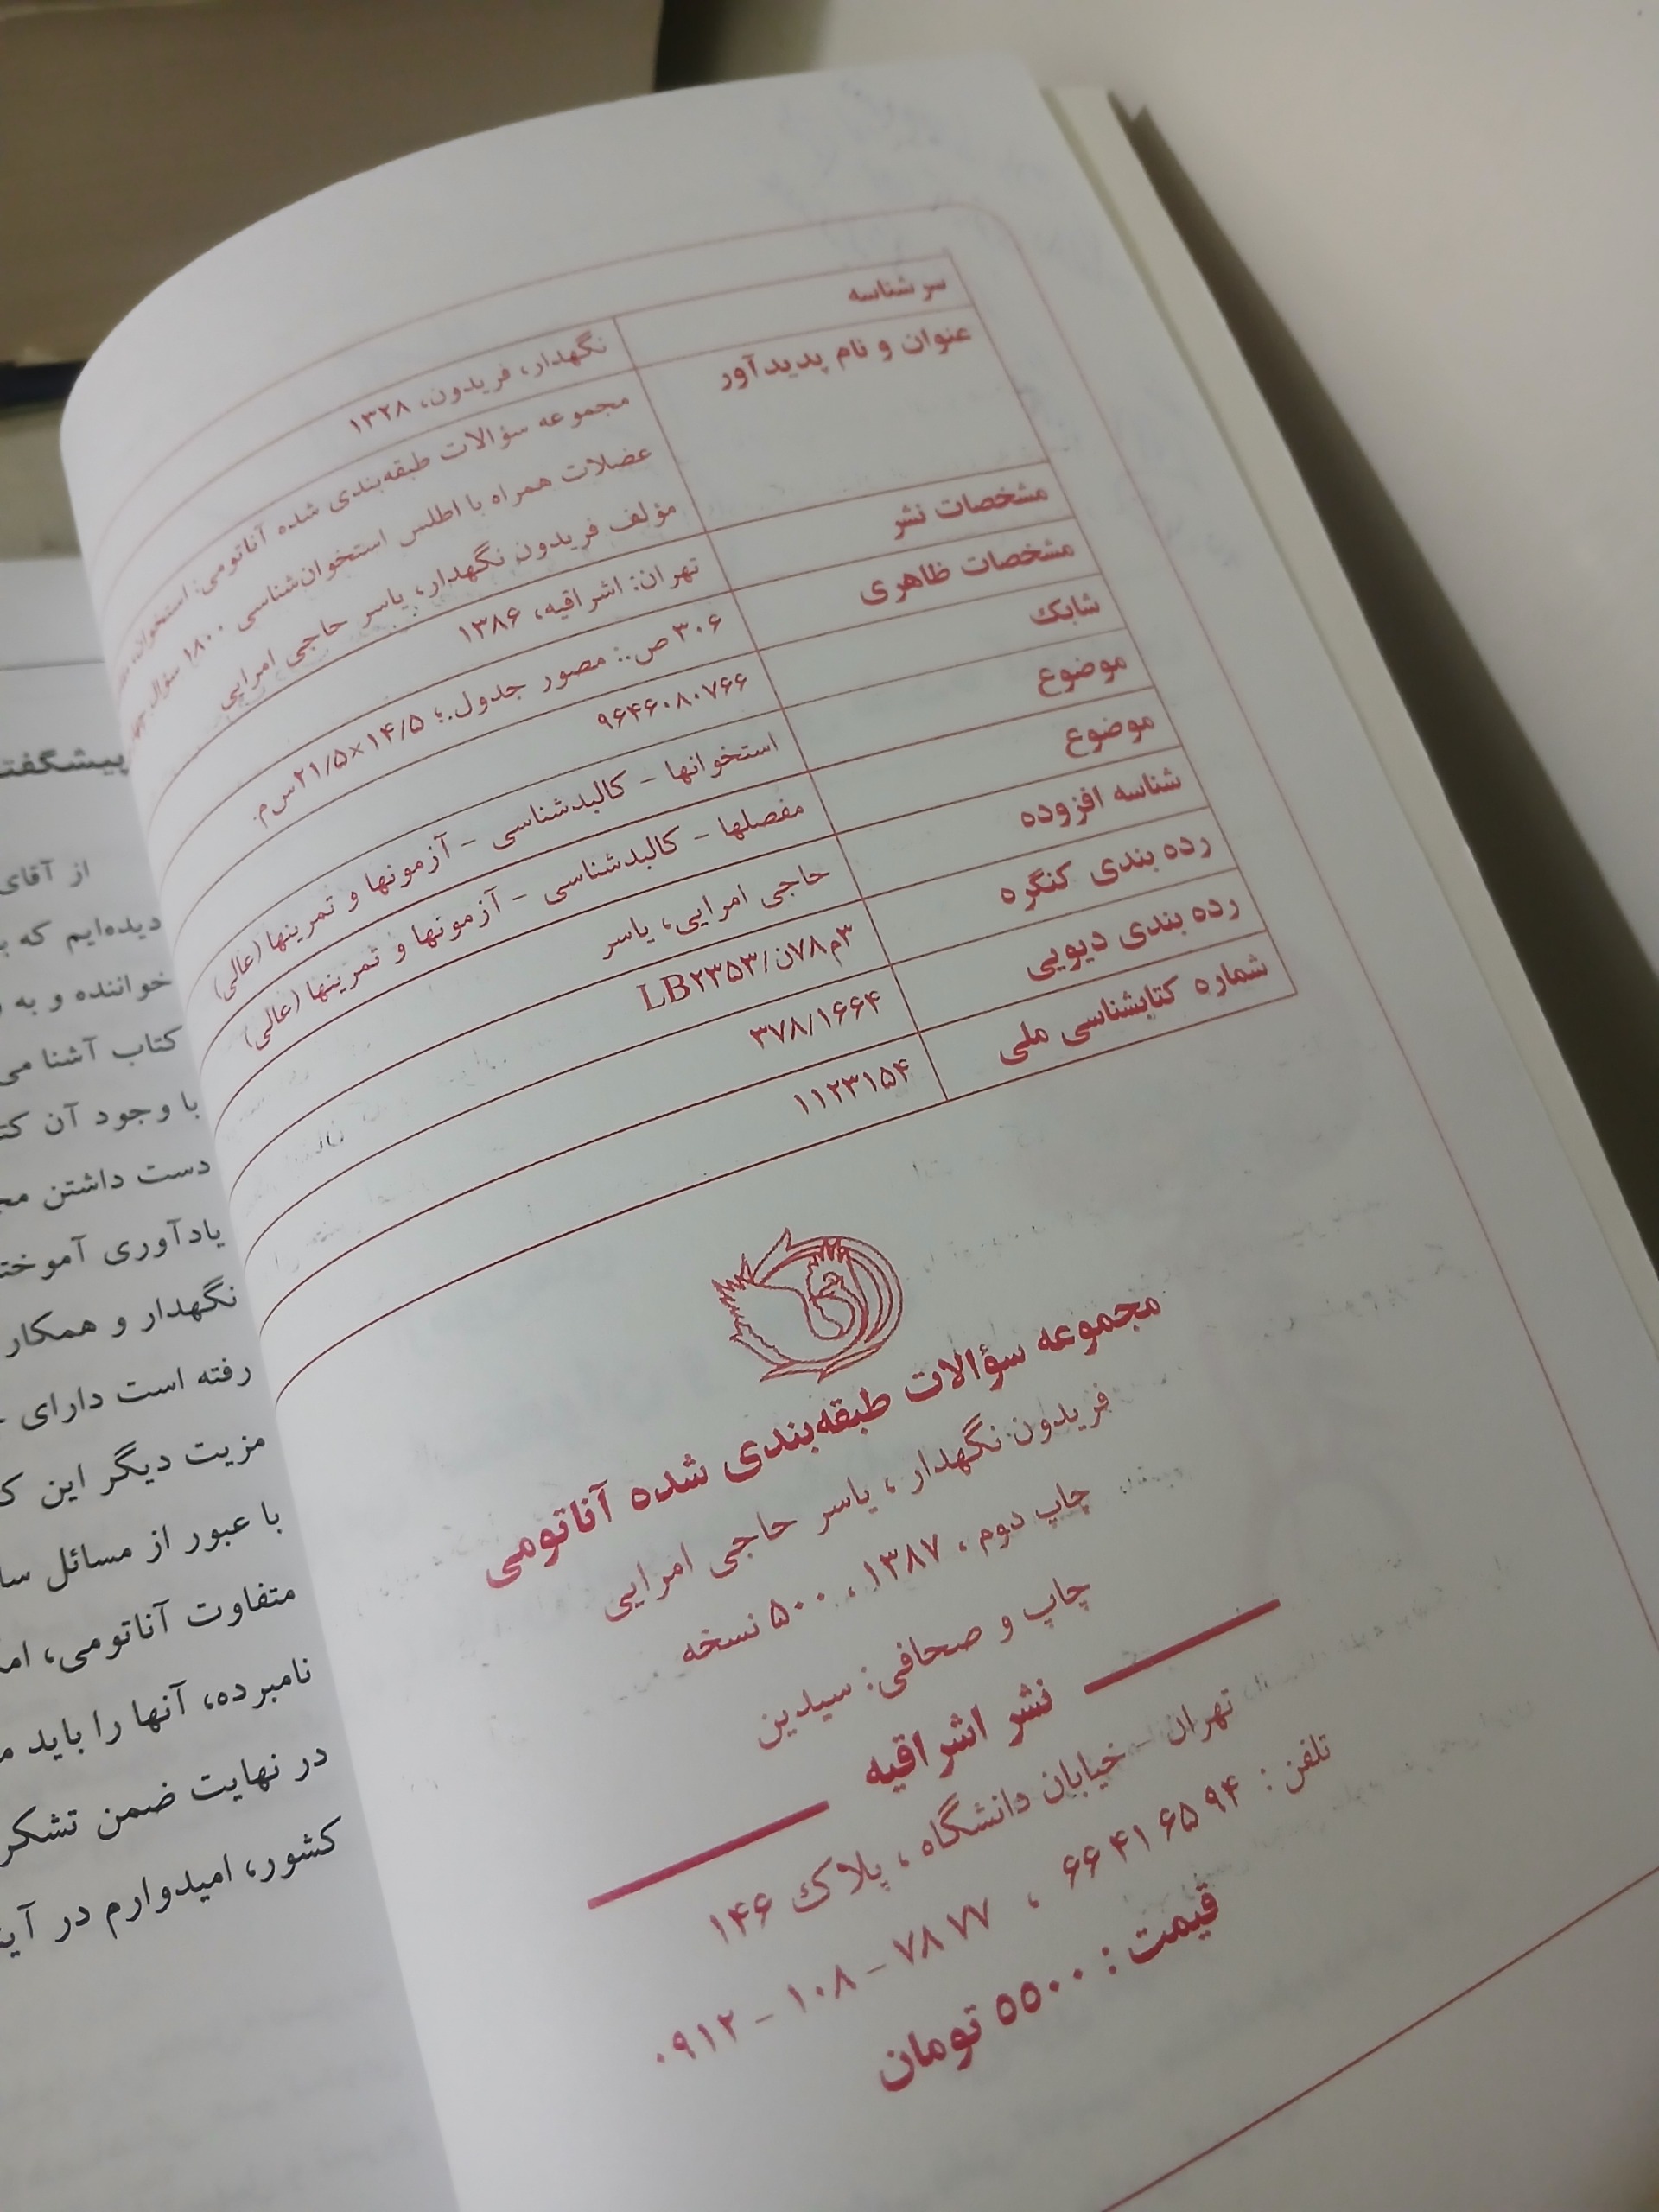 سرشناسه نگهدار، فریدون، ۱۳۲۸
عنوان و نام پدیدآور مجموعه سؤالات طبقه‌بندی شده آناتومی: استخوان،
عضلات همراه با اطلس استخوان‌شناسی ۱۸۰۰ سؤال
مؤلف فریدون نگهدار، یاسر حاجی امرایی
مشخصات نشر تهران: اشراقیه، ۱۳۸۶
مشخصات ظاهری ۳۰۶ ص.: مصور جدول.؛ ۱۴/۵×۲۱/۵س‌م.
شابک ۹۶۴۶۰۸۰۷۶۶
موضوع استخوانها - کالبدشناسی - آزمونها و تمرینها (عالی)
موضوع مفصلها - کالبدشناسی - آزمونها و تمرینها (عالی)
شناسه افزوده حاجی امرایی، یاسر
رده بندی کنگره LB۲۳۵۳/ن۷۸م۳
رده بندی دیویی ۳۷۸/۱۶۶۴
شماره کتابشناسی ملی ۱۱۲۳۱۵۴
مجموعه سؤالات طبقه‌بندی شده آناتومی
فریدون نگهدار ، یاسر حاجی امرایی
چاپ دوم ، ۱۳۸۷ ، ۵۰۰ نسخه
چاپ و صحافی: سیدین
نشر اشراقیه
تهران - خیابان دانشگاه ، پلاک ۱۴۶
تلفن : ۶۶۴۱۶۵۹۴ ، ۷۸۷۷ - ۱۰۸ - ۰۹۱۲
قیمت : ۵۵۰۰ تومان
پیشگفت
از آقای
دیده‌ایم که
خواننده و به
کتاب آشنا می
با وجود آن
دست داشتن
یادآوری
نگهدار و همکار
رفته است دارای
مزیت دیگر این
با عبور از مسائل
متفاوت آناتومی،
نامبرده، آنها را باید
در نهایت ضمن تشکر
کشور، امیدوارم در